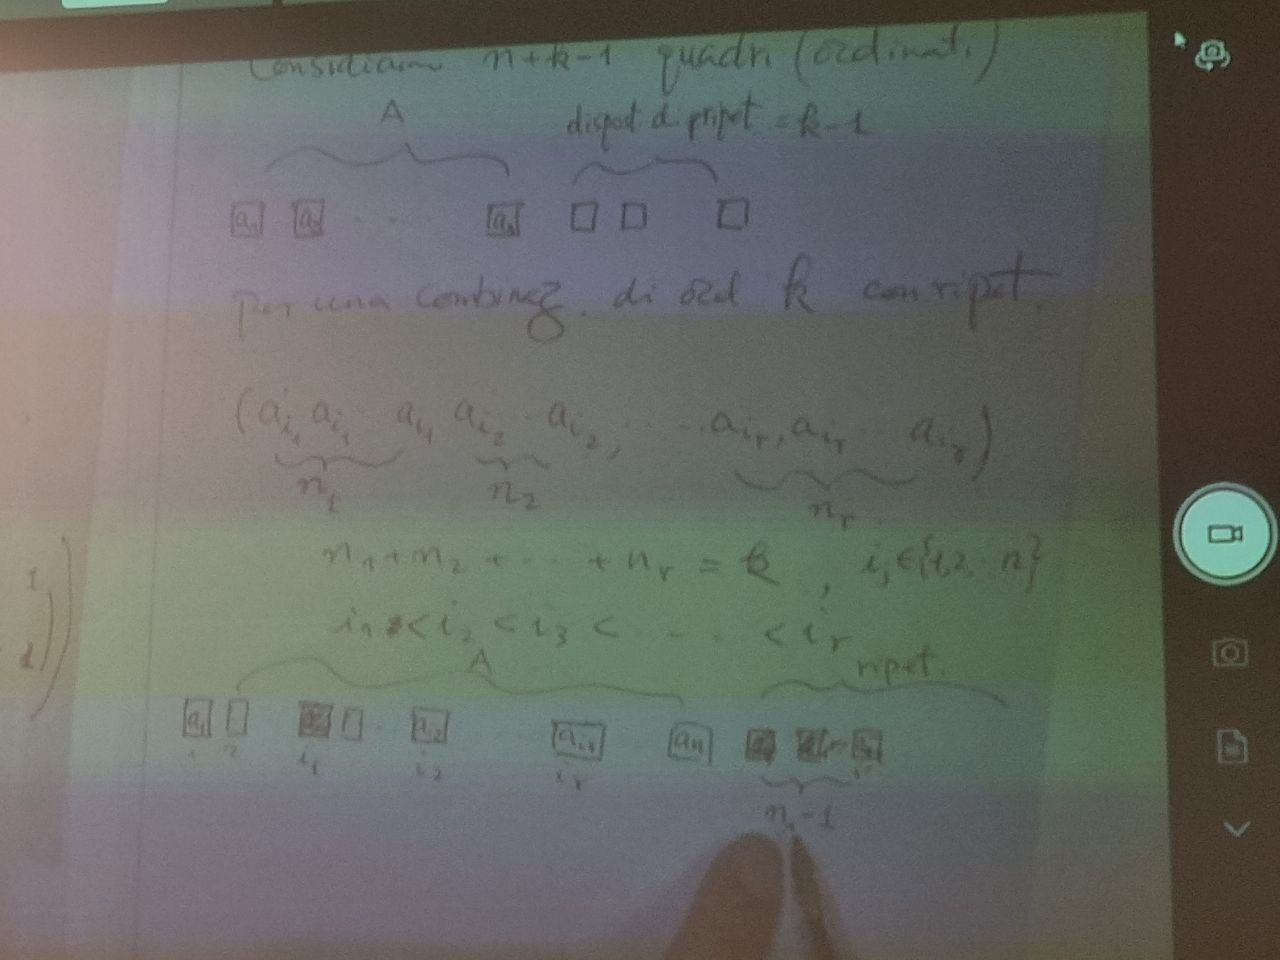 Consideriamo n+k-1 quadri (ordinati)
A
dispost. di ripet = k-1
a₁ a₂ · · · aₙ □ □ □
per una combinaz. di ord k con ripet.
(a_{i₁} a_{i₁} a_{i₁} a_{i₂} ·· a_{i₂}, ···· a_{i_r}, a_{i_r} ·· a_{i_r})
n₁ n₂ n_r
n₁+n₂ + ··· + n_r = k , i_j ∈ {1,2, ·· n}
i₁ < i₂ < i₃ < ···· < i_r
A ripet.
a₁ □ □ ·· a_{i₂} ··· a_{i_r} ·· aₙ
1 2 i₁ i₂ i_r
n₁-1